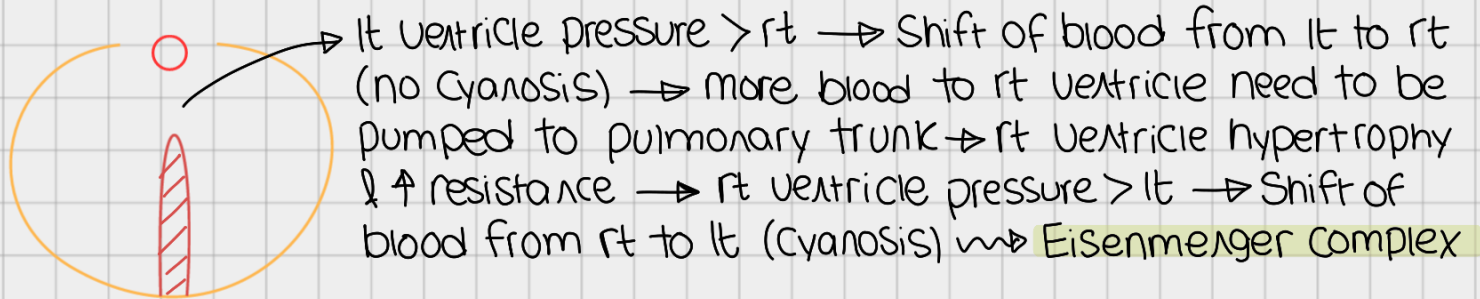 lt ventricle pressure > rt → Shift of blood from lt to rt
(no Cyanosis) → more blood to rt ventricle need to be
pumped to pulmonary trunk → rt ventricle hypertrophy
& ↑ resistance → rt ventricle pressure > lt → Shift of
blood from rt to lt (Cyanosis) ⇝ Eisenmenger complex